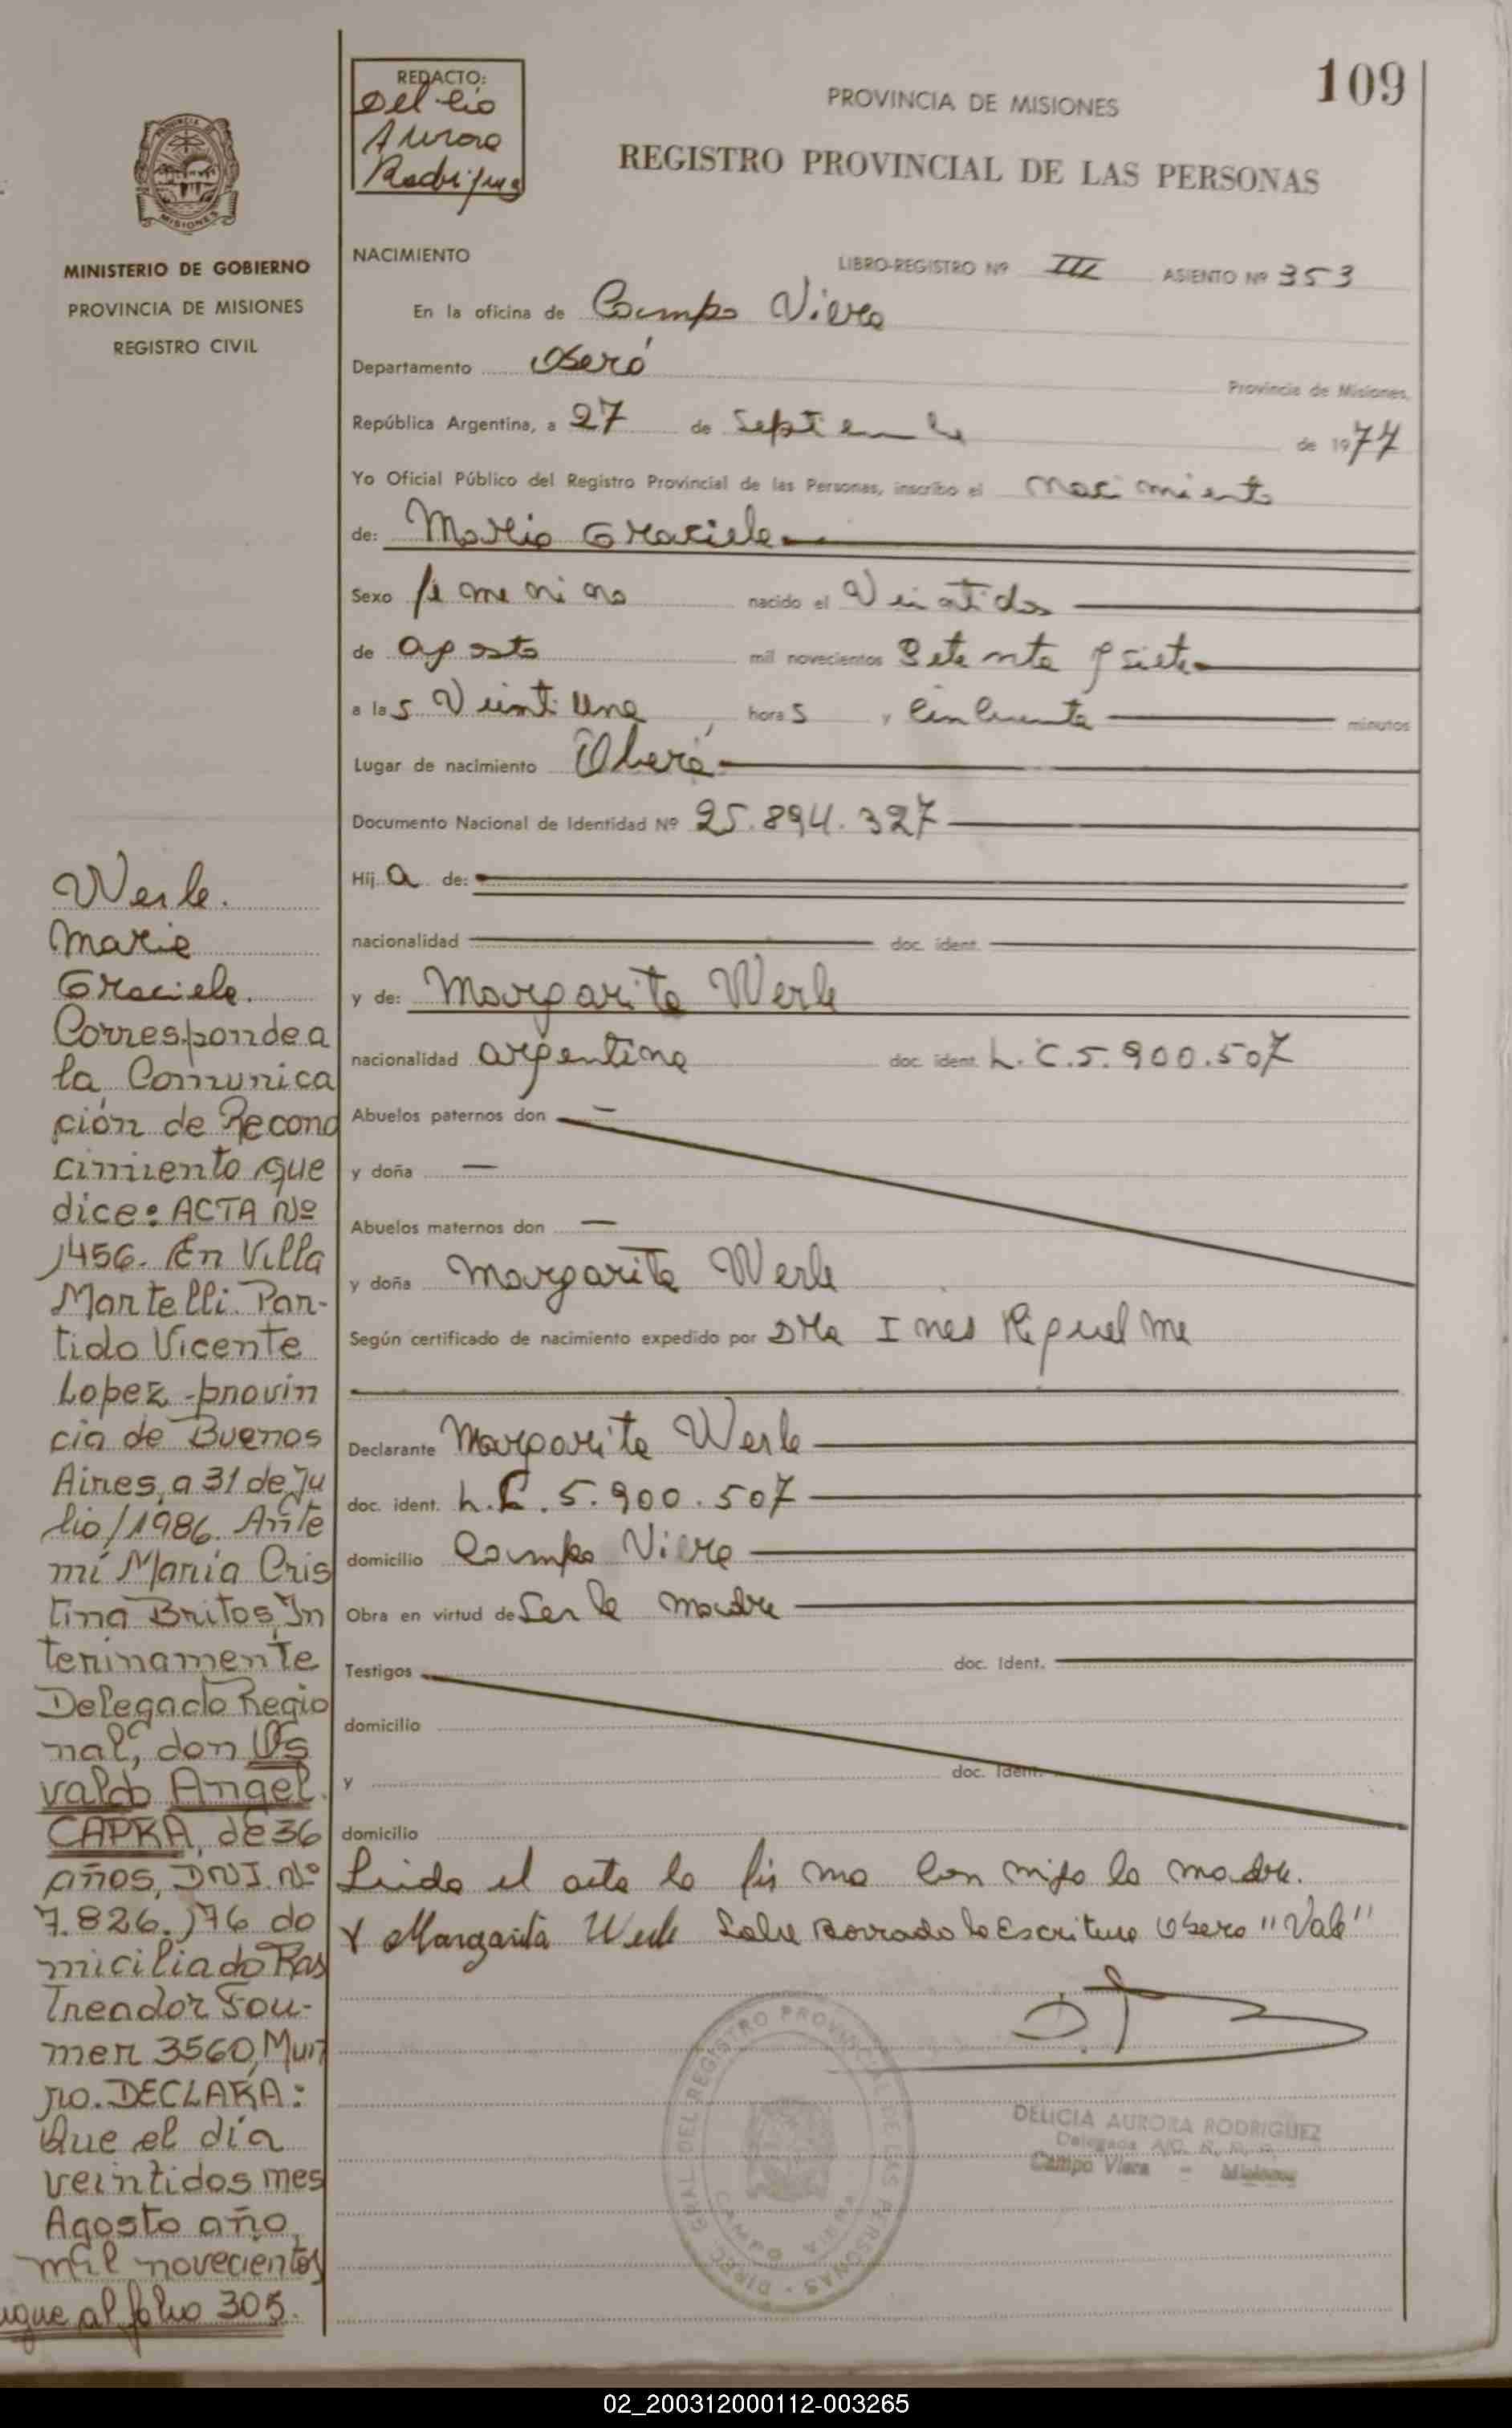 109
REDACTO:
Delicia
Aurora
Rodriguez
PROVINCIA DE MISIONES
REGISTRO PROVINCIAL DE LAS PERSONAS
MINISTERIO DE GOBIERNO
PROVINCIA DE MISIONES
REGISTRO CIVIL
NACIMIENTO
LIBRO-REGISTRO Nº III ASIENTO Nº 353
En la oficina de Campo Viera
Departamento Oberá Provincia de Misiones,
República Argentina, a 27 de Septiembre de 1977
Yo Oficial Público del Registro Provincial de las Personas, inscribo el nacimiento
de: Maria Graciela
Sexo femenino nacido el Veintidos
de agosto mil novecientos Setenta y siete
a las Veintiuna horas y Cincuenta minutos
Lugar de nacimiento Oberá
Documento Nacional de Identidad Nº 25.894.327
Hija de:
nacionalidad doc. ident.
y de: Margarita Werle
nacionalidad argentina doc. ident. L.C.5.900.507
Abuelos paternos don —
y doña —
Abuelos maternos don —
y doña Margarita Werle
Según certificado de nacimiento expedido por Dra Ines Riquelme
Declarante Margarita Werle
doc. ident. L.C.5.900.507
domicilio Campo Viera
Obra en virtud de Ser la madre
Testigos doc. Ident.
domicilio
y doc. Ident.
domicilio
Leida el acta la firma conmigo la madre.
X Margarita Werle Sobre Borrado la Escritura Obera "Vale"
DIREC. GRAL DEL REGISTRO PROVINCIAL DE LAS PERSONAS
CAMPO VIERA
DELICIA AURORA RODRIGUEZ
Campo Viera - Misiones
Werle.
Maria
Graciela.
Corresponde a
la Comunica
ción de Recono
cimiento que
dice: ACTA Nº
1456. En Villa
Martelli. Par-
tido Vicente
Lopez -provin
cia de Buenos
Aires, a 31 de Ju
lio/1986. Ante
mí María Cris
tina Britos, In
terinamente
Delegado Regio
nal, don Os
valdo Angel
CAPRA, de 36
años, DNI. Nº
7.826.176 do
miciliado Ras
treador Four-
mer 3560, Mun
ro. DECLARA:
Que el día
veintidos mes
Agosto año
mil novecientos
sigue al folio 305.
02_200312000112-003265